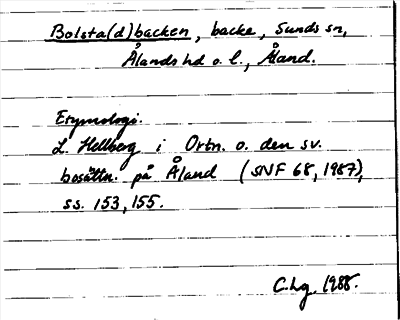 Bolsta(d)backen, backe, Sunds sn,
Ålands hd o. l., Åland.
Etymologi.
L. Hellberg i Ortn. o. den sv.
bosättn. på Åland (SNF 68, 1987),
ss. 153, 155.
C.Lg. 1988.